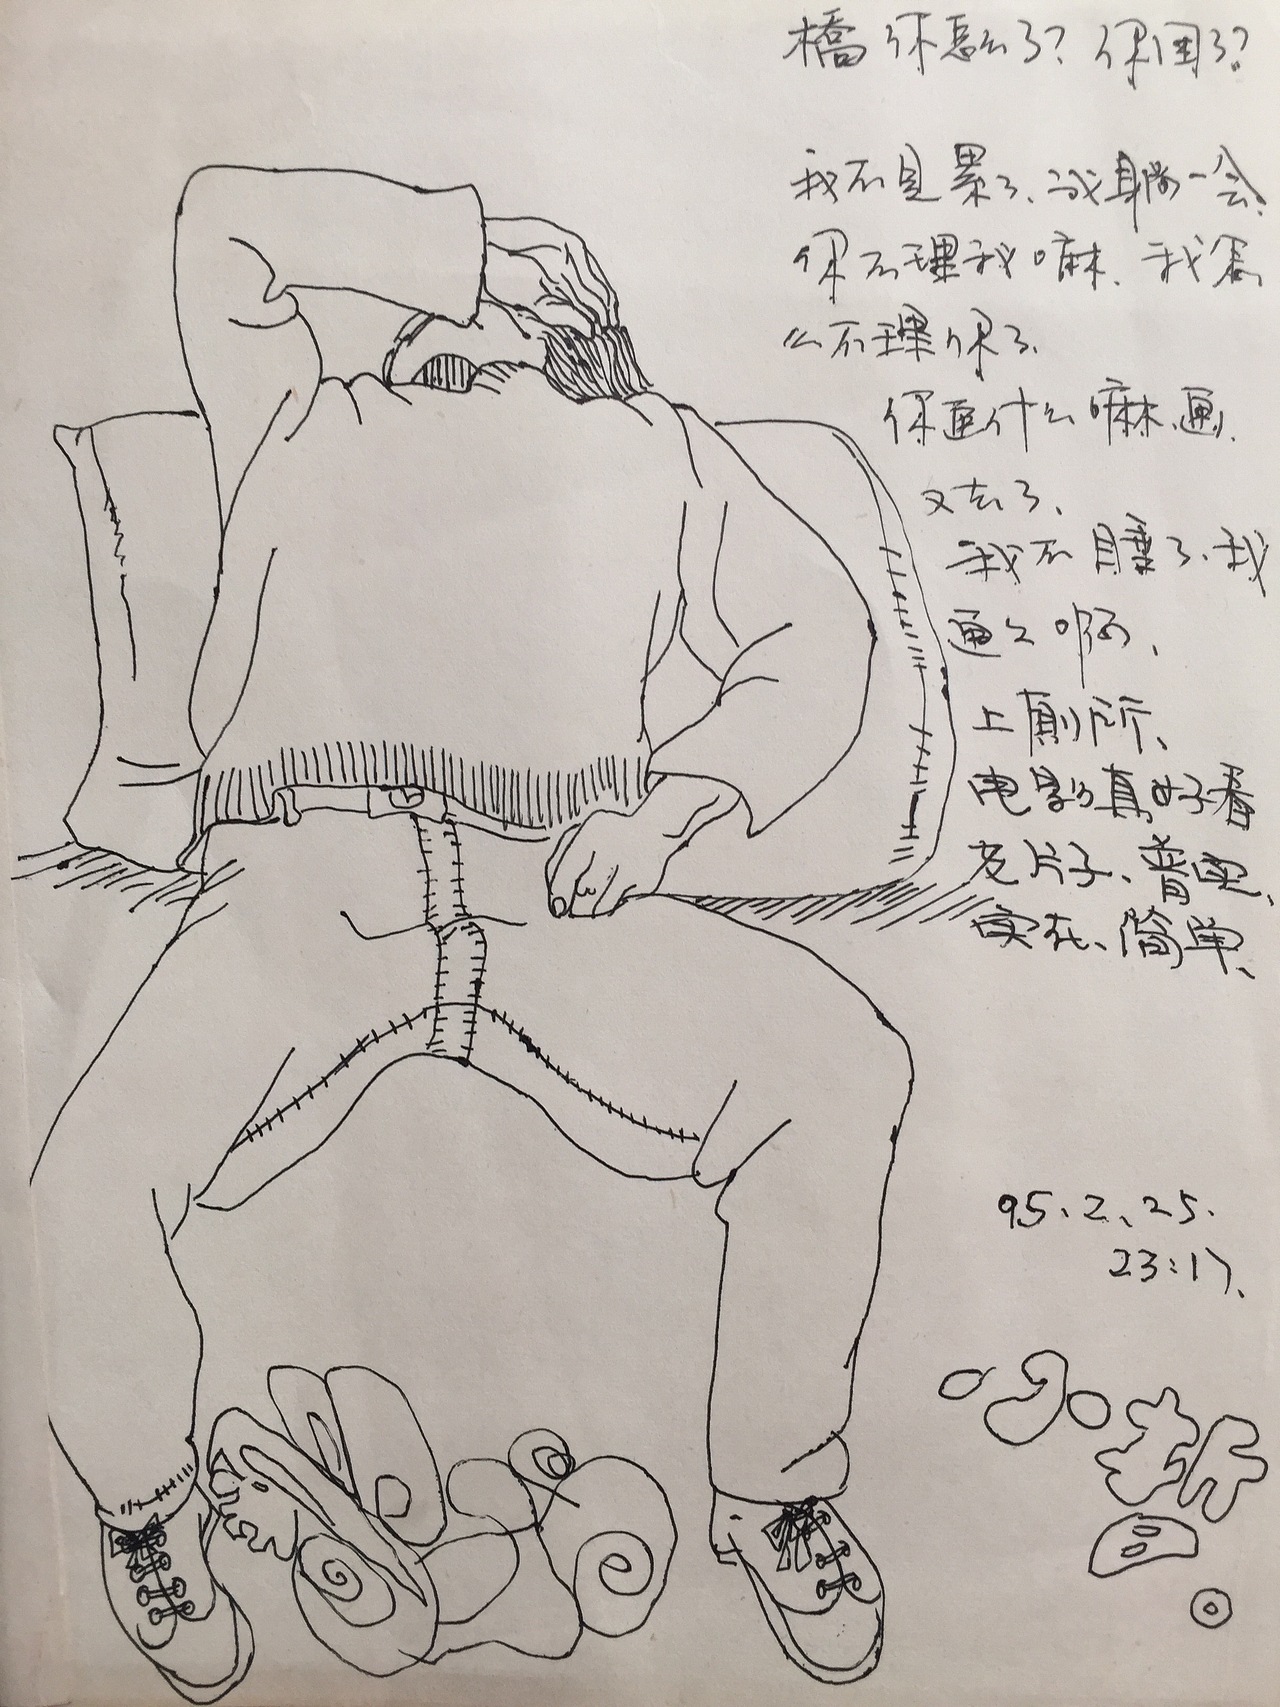 橋你怎么了？你困了？
我不是累了、我躺一会、
你不理我嘛、我怎
么不理你了、
你画什么嘛画、
又去了、
我不睡了、我
画么啊、
上厕所、
电影真好看
老片子、普通、
实在、简单、
95、2、25、
23:17、
小